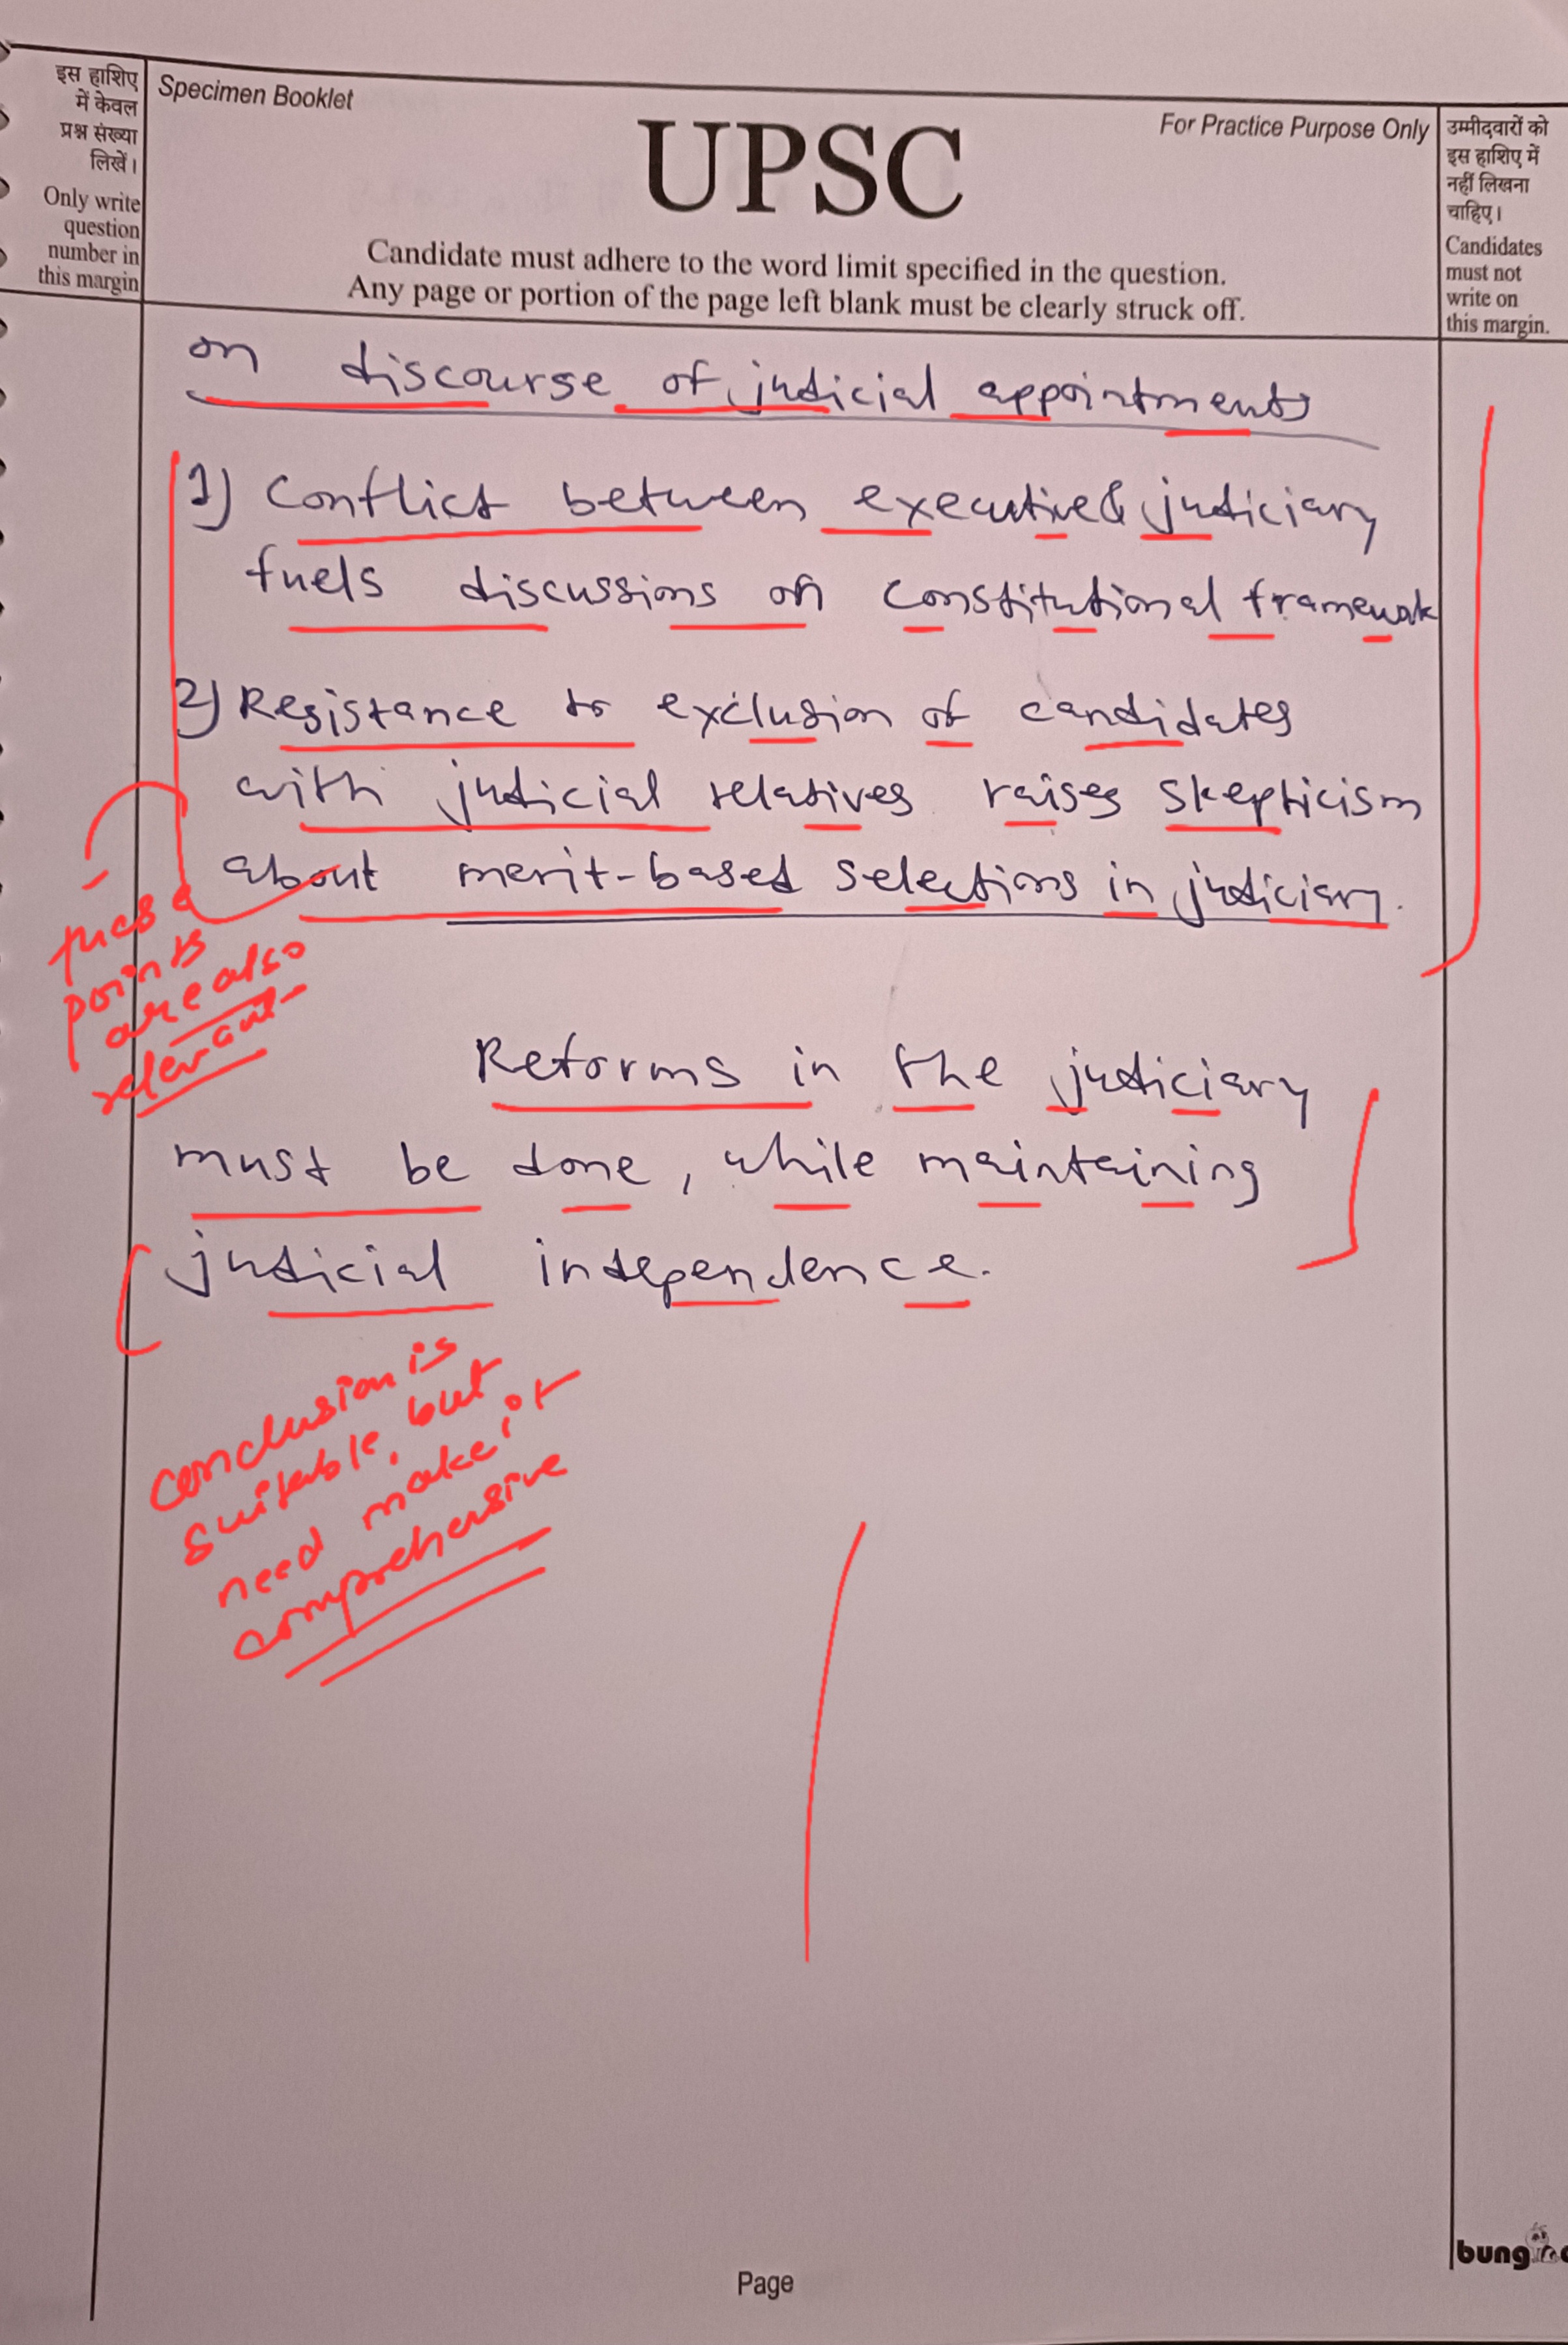 इस हाशिए
में केवल
प्रश्न संख्या
लिखें।
Only write
question
number in
this margin
Specimen Booklet
UPSC
For Practice Purpose Only
Candidate must adhere to the word limit specified in the question.
Any page or portion of the page left blank must be clearly struck off.
उम्मीदवारों को
इस हाशिए में
नहीं लिखना
चाहिए।
Candidates
must not
write on
this margin.
on discourse of judicial appointments
1) Conflict between executive & judiciary
fuels discussions on constitutional framework
2) Resistance to exclusion of candidates
with judicial relatives raises skepticism
about merit-based selections in judiciary.
these
points
are also
relevant
Reforms in the judiciary
must be done, while maintaining
judicial independence.
conclusion is
suitable, but
need make it
comprehensive
Page